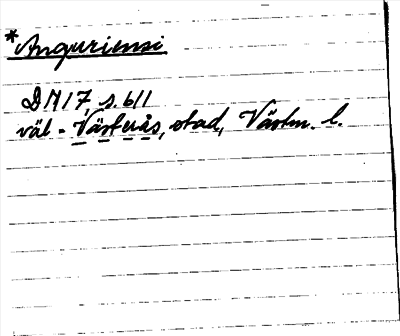 *Anguriensi
DN 17, s. 611
väl = Västerås, stad, Västm. l.